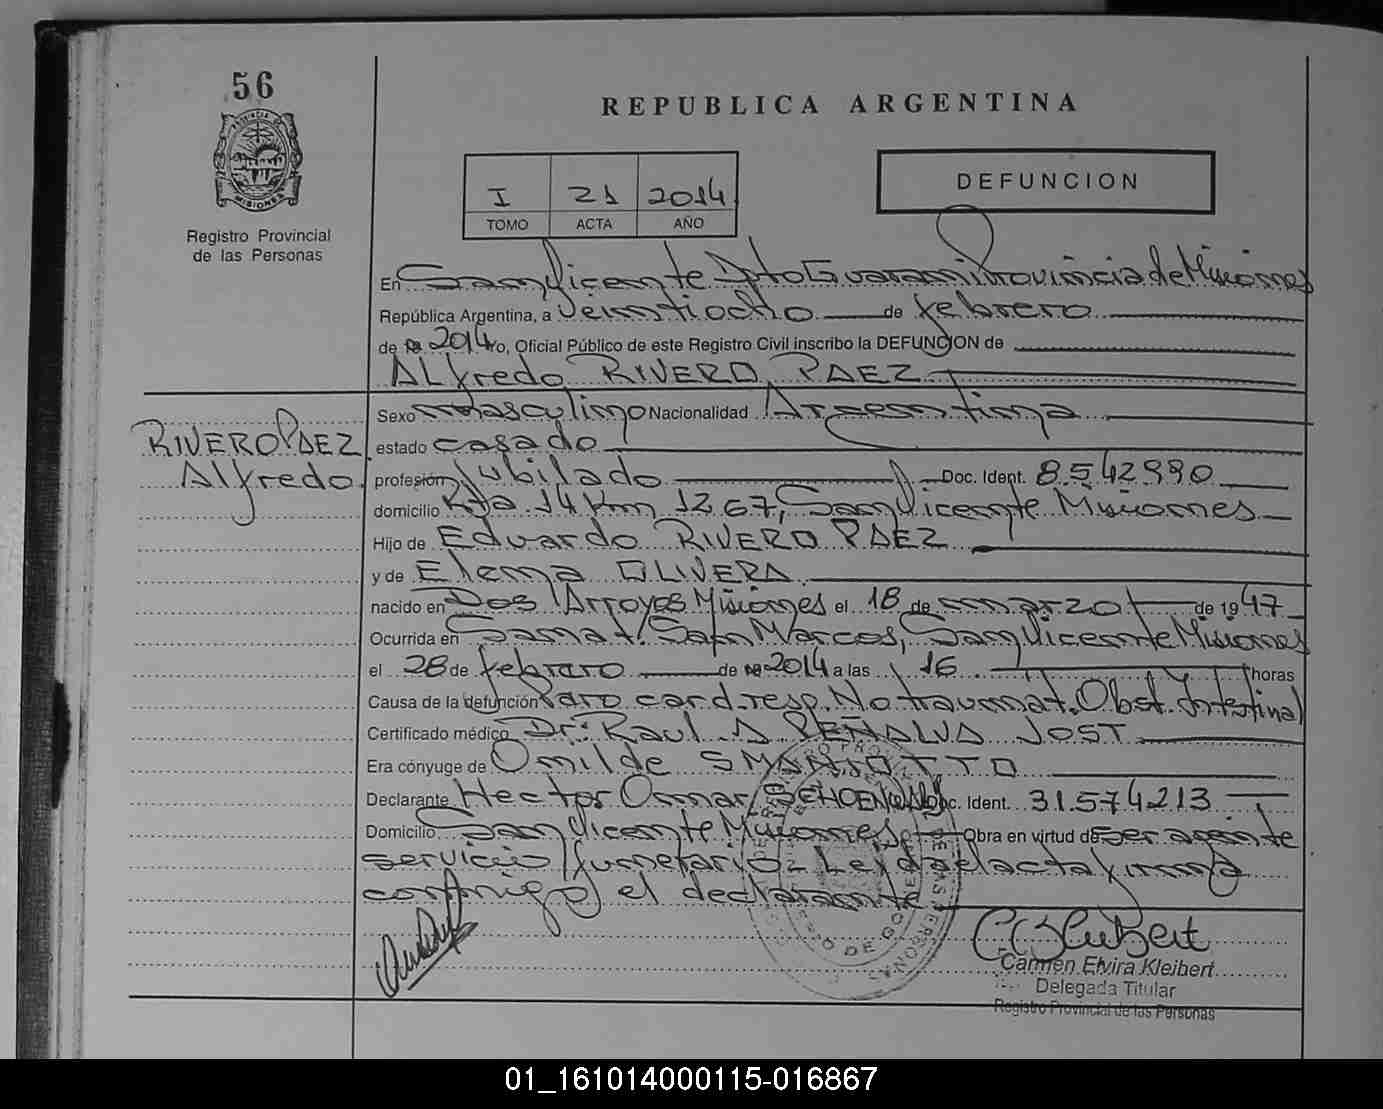 56
PROVINCIA DE
MISIONES
Registro Provincial
de las Personas
REPUBLICA ARGENTINA
I 21 2014
TOMO ACTA AÑO
DEFUNCION
En San Vicente Dpto Guarani Provincia de Misiones
República Argentina, a veintiocho de febrero
de 2014 Yo, Oficial Público de este Registro Civil inscribo la DEFUNCION de
Alfredo RIVERO PAEZ
RIVERO PAEZ
Alfredo
Sexo masculino Nacionalidad Argentina
estado casado
profesión Jubilado Doc. Ident. 8542990
domicilio Rta 14 Km 1267, San Vicente Misiones
Hijo de Eduardo RIVERO PAEZ
y de Elena OLIVERA
nacido en Dos Arroyos Misiones el 18 de marzo de 1947
Ocurrida en Sanat. San Marcos, San Vicente Misiones
el 28 de febrero de 2014 a las 16 horas
Causa de la defunción Paro card. resp. No traumat. Obst. Intestinal
Certificado médico Dr. Raul A PEÑALVA JOST
Era cónyuge de Omilde SMANIOTTO
Declarante Hector Omar Doc. Ident. 31.574213
Domicilio San Vicente Misiones Obra en virtud de ser agente
servicio funerario. Leida el acta firma
conmigo el declarante
Carmen Elvira Kleibert
Delegada Titular
Registro Provincial de las Personas
01_161014000115-016867